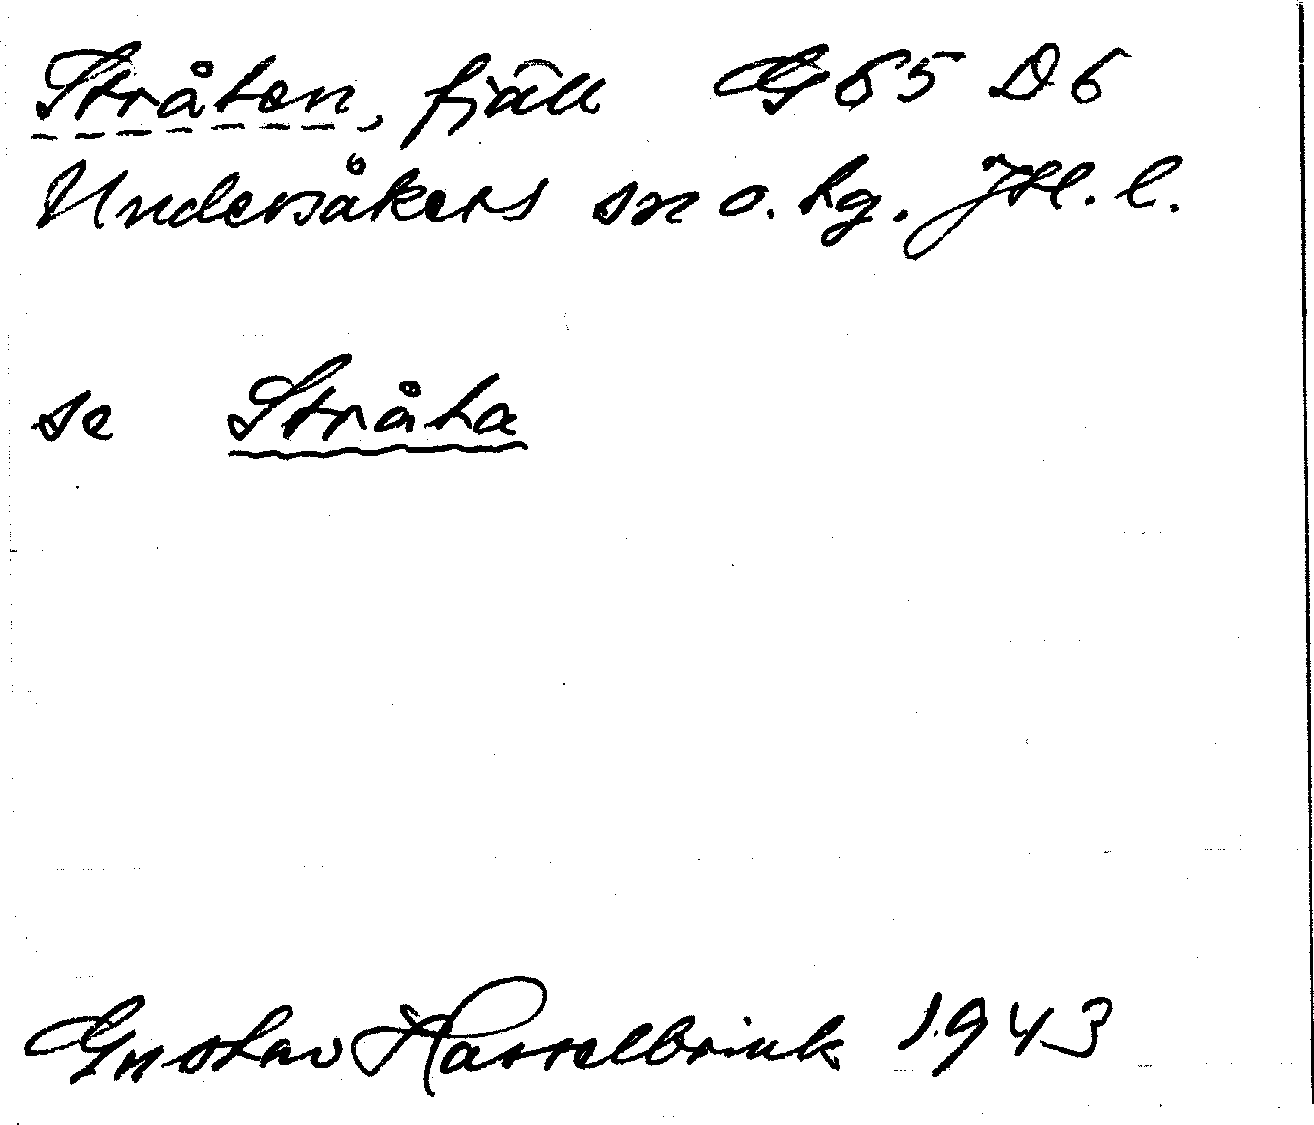 Stråten, fjäll G65 D6
Undersåkers sn o. tg. Jtl. l.
se Stråta
Gustav Hasselbrink 1943